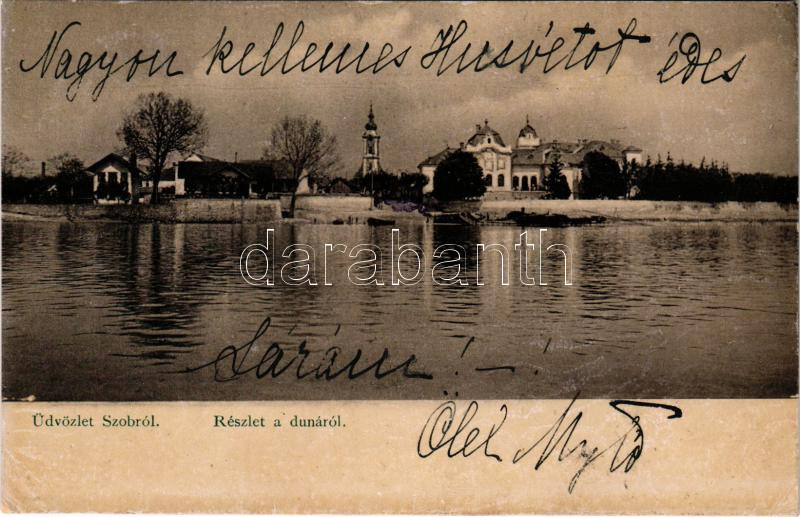 Nagyon kellemes Húsvétot édes
darabanth
Sárám! - !
Üdvözlet Szobról. Részlet a dunáról.
Ölel